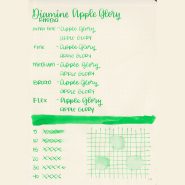 Diamine Apple Glory
Extra Fine - Apple Glory
APPLE GLORY
Fine - Apple Glory
APPLE GLORY
Medium - Apple Glory
APPLE GLORY
Broad - Apple Glory
APPLE GLORY
Flex - Apple Glory
APPLE GLORY
5
10
15
20
30
40